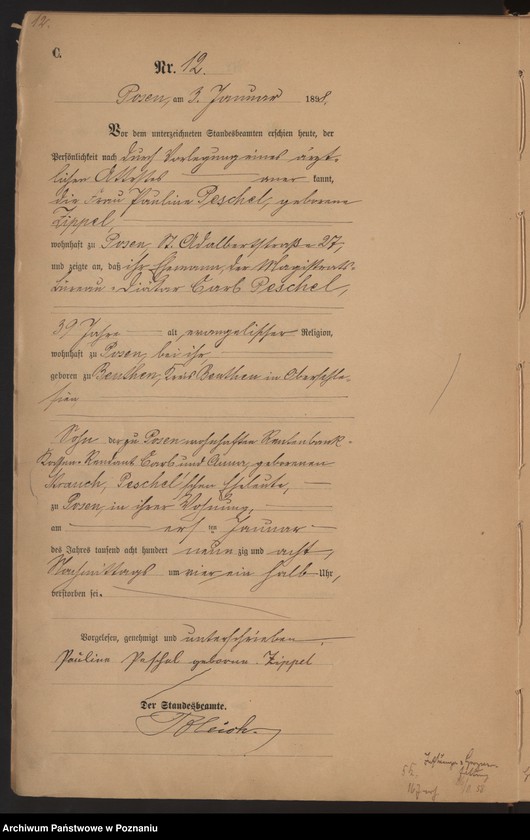 12.
C.
Nr. 12.
Posen, am 3. Januar 1898.
Vor dem unterzeichneten Standesbeamten erschien heute, der
Persönlichkeit nach durch Vorlegung eines ärzt-
lichen Attestes aner kannt,
die Frau Pauline Peschel, geborene
Zippel,
wohnhaft zu Posen, St. Adalbertstraße 27,
und zeigte an, daß ihr Ehemann, der Magistrats-
büreau-Diätar Carl Peschel,
39 Jahre alt, evangelischer Religion,
wohnhaft zu Posen, bei ihr,
geboren zu Beuthen, Kreis Beuthen in Oberschle-
sien
Sohn der zu Posen wohnhaften Rentenbank-
Kassen-Rendant Carl und Anna, geborenen
Strauch, Peschel'schen Eheleute,
zu Posen, in ihrer Wohnung,
am ersten Januar
des Jahres tausend acht hundert neunzig und acht,
Nachmittags um vier ein halb Uhr,
verstorben sei.
Vorgelesen, genehmigt und unterschrieben
Pauline Peschel geborene Zippel
Der Standesbeamte.
Archiwum Państwowe w Poznaniu